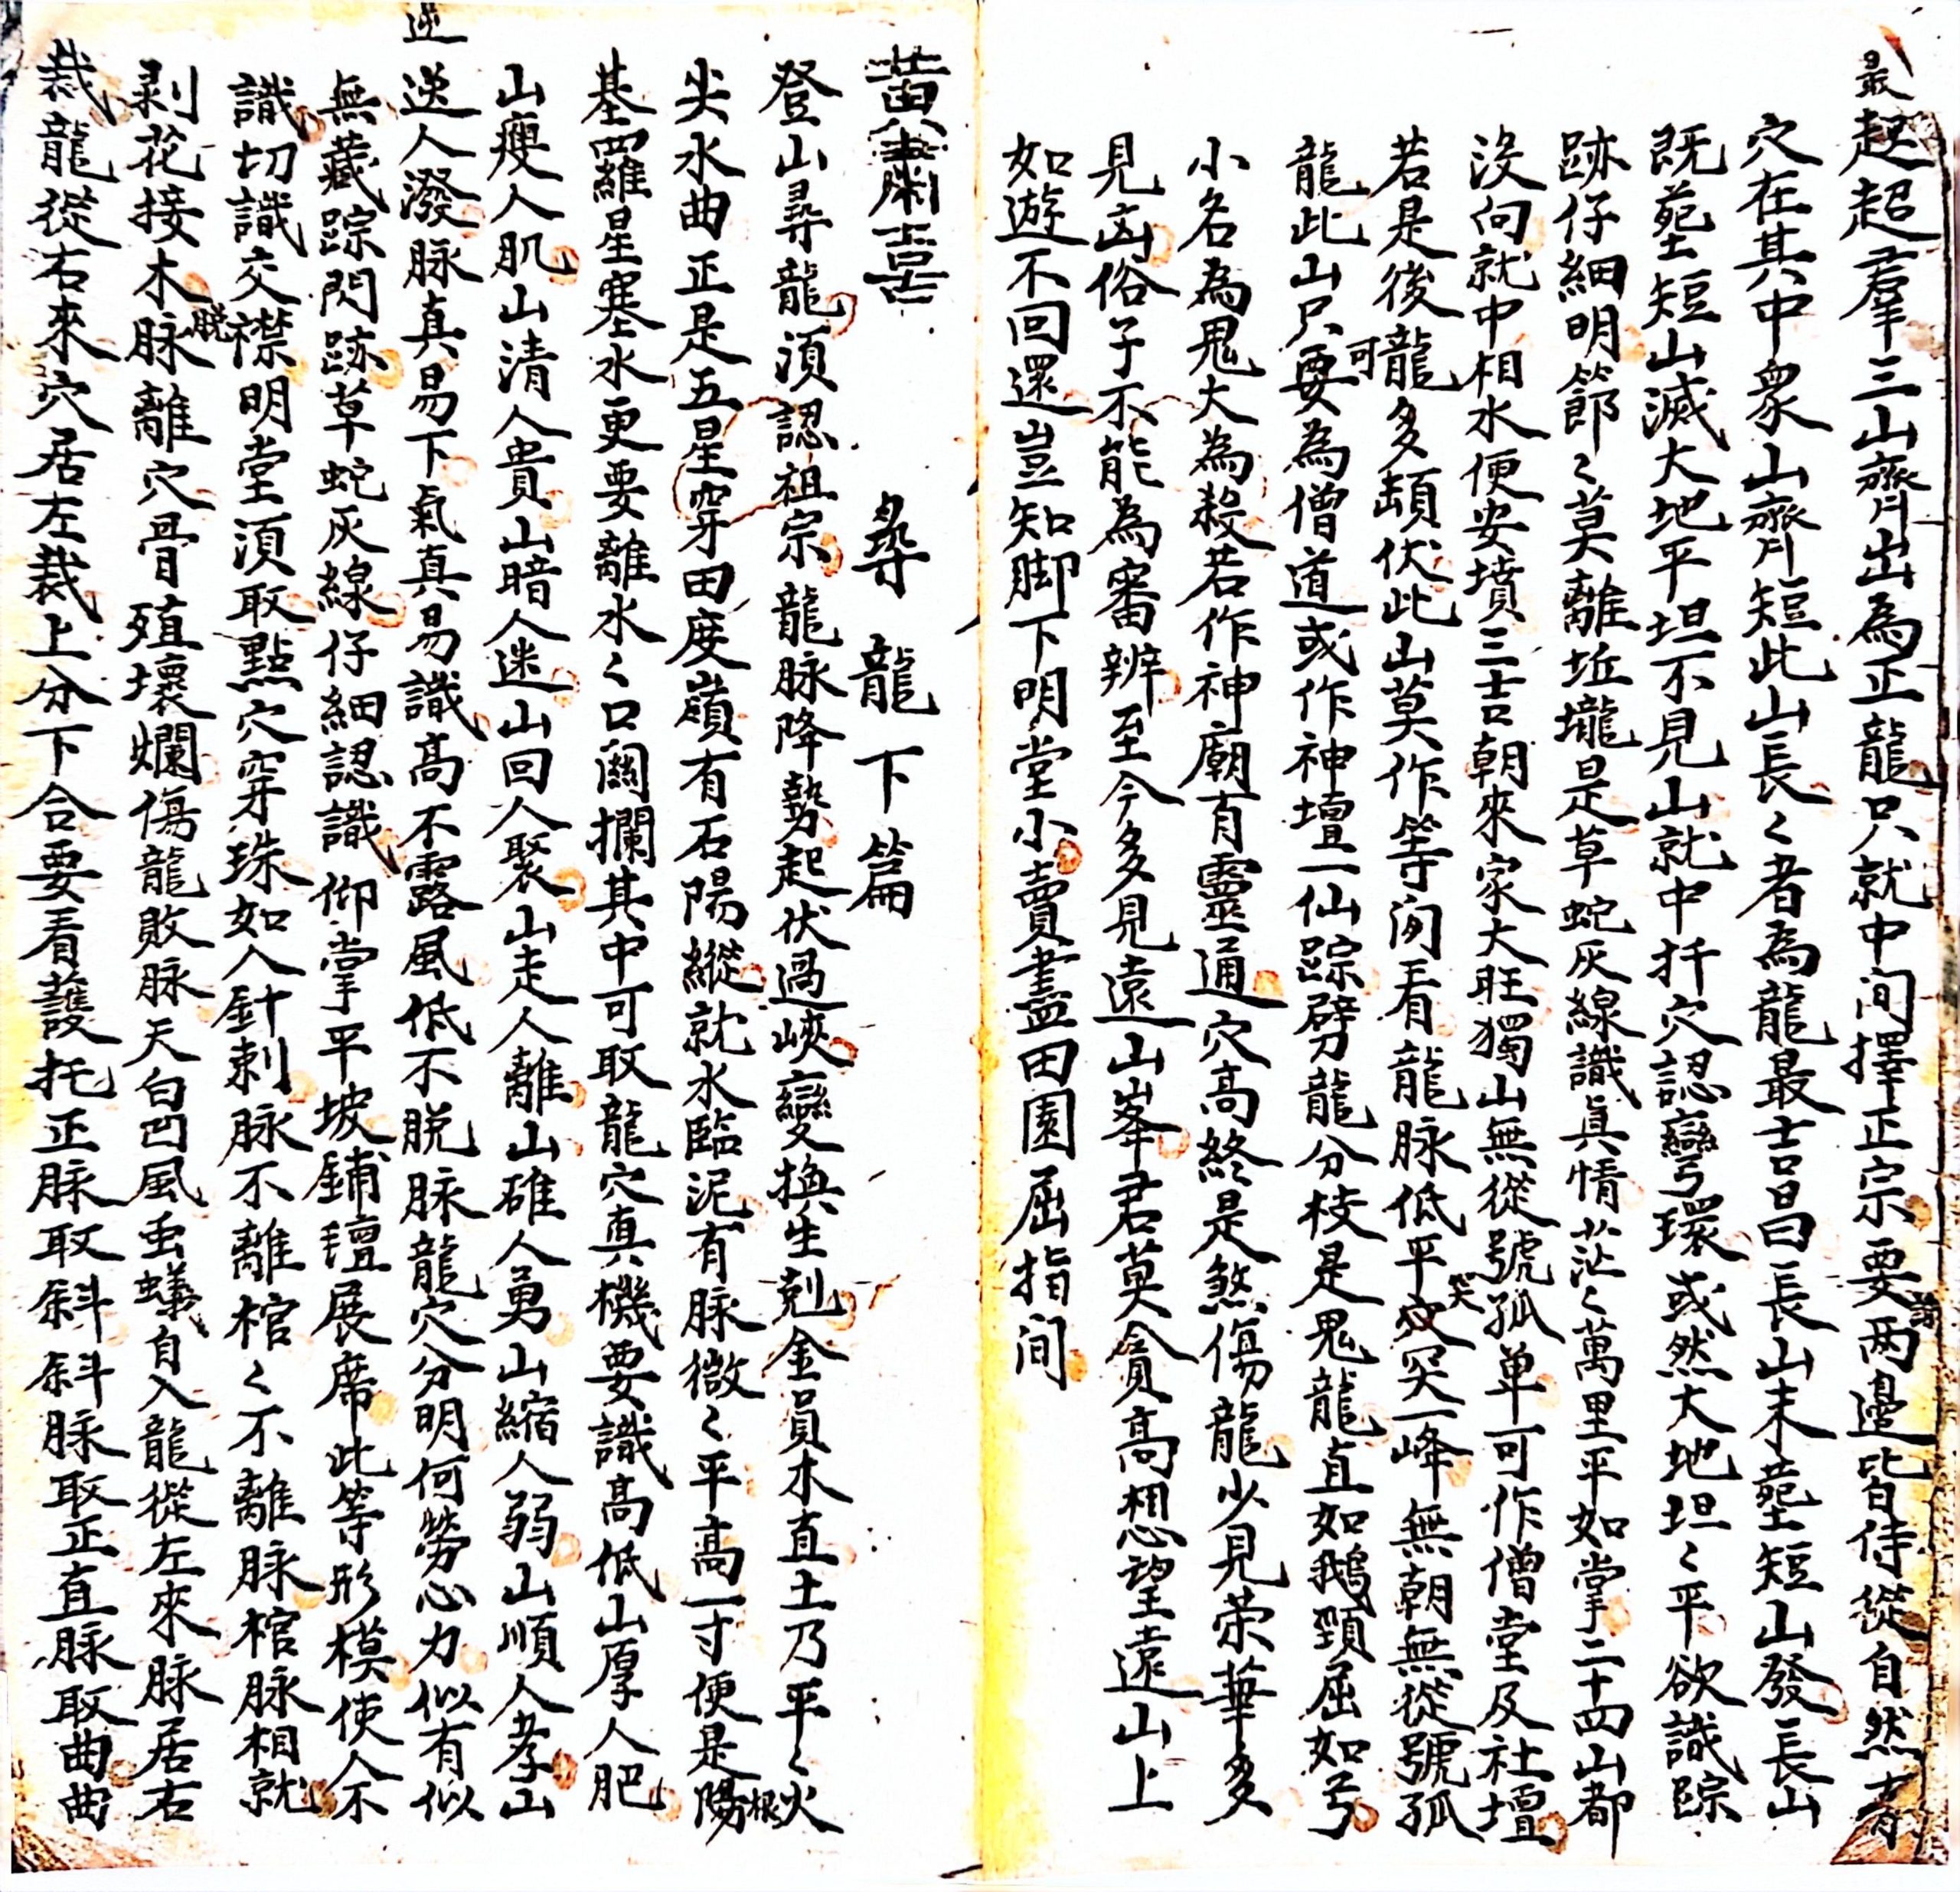 最起超羣三山齊出為正龍只就中间擇正宗要两邊皆侍從自然有
穴在其中衆山齊短此山長〻者為龍最吉昌長山末塟短山發長山
既塟短山滅大地平坦不見山就中扦穴認彎環或然大地坦〻平欲識踪
跡仔細明節〻莫離坵壠是草蛇灰線識真情茫〻萬里平如掌二十四山都
沒向就中相水便安墳三吉朝來家大旺獨山無從號孤单可作僧堂及社壇
若是後龍多頓伏此山莫作等闲看龍脉低平突一峰無朝無從號孤
龍此山只要為僧道或作神壇一仙踪劈龍分枝是鬼龍直如鵝頸屈如弓
小名為鬼大為殺若作神廟有靈通穴高終是煞傷龍少見荣華多
見凶俗子不能為審辨至今多見遠山峯君莫貪高想望遠山上
如遊不回還豈知脚下明堂小賣盡田園屈指间
黄肅喜 尋龍下篇
登山尋龍須認祖宗龍脉降勢起伏過峽變換生剋金員木直土乃平〻火
尖水曲正是五星穿田度嶺有石陽縱就水臨泥有脉微〻平高一寸便是陽
基羅星塞水更要離水〻口関攔其中可取龍穴真機要識高低山厚人肥
山瘦人肌山清人貴山暗人迷山回人聚山走人離山碓人勇山縮人弱山順人孝山
逆人潑脉真易下氣真易識高不露風低不脱脉龍穴分明何勞心力似有似
無藏踪閃跡草蛇灰線仔細認識仰掌平坡鋪氊展席此等形模使人不
識切識交襟明堂須取點穴穿珠如人針刺脉不離棺〻不離脉棺脉相就
剥花接木脉離穴骨殖壞爛傷龍敗脉天白凹風虫蟻自入龍從左來脉居右
裁龍從右來穴居左裁上分下合要看護托正脉取斜斜脉取正直脉取曲曲